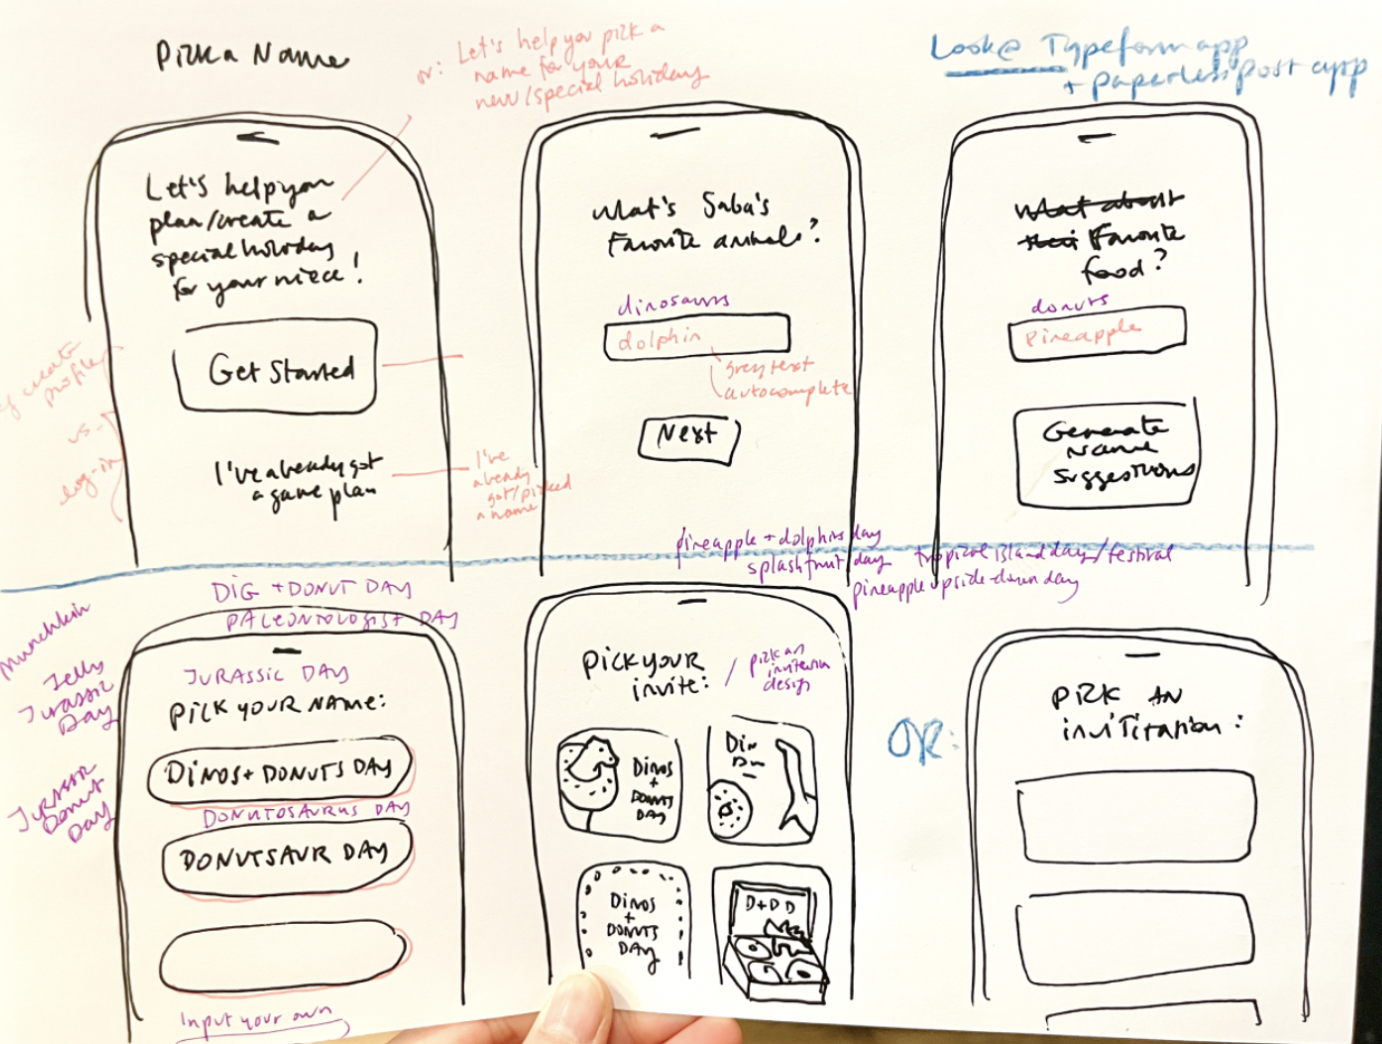 Pick a Name
or: Let's help you pick a
name for your
new/special holiday
Look@ Typeform app
+ paperless post app
Let's help you
plan/create a
special holiday
for your niece!
Get Started
I've already got
a game plan
create
profile
vs.
log-in
I've
already
got/picked
a name
What's Saba's
Favorite animals?
dinosaurs
dolphin
grey text
autocomplete
Next
What about
their Favorite
food?
donuts
pineapple
Generate
Name
Suggestions
pineapple + dolphins day
splash fruit day
tropical island day/festival
pineapple upside-down day
DIG + DONUT DAY
PALEONTOLOGIST DAY
JURASSIC DAY
Munchkin
Jelly
Jurassic
Day
Jurassic
Donut
Day
PICK YOUR NAME:
DINOS + DONUTS DAY
DONUTOSAURUS DAY
DONUTSAUR DAY
Input your own
PICK YOUR
invite:
/ pick an
invitation
design
DINOS
+
DONUTS
DAY
Din
Du
DINOS
+
DONUTS
DAY
D+DD
OR:
PICK AN
inviTitation: